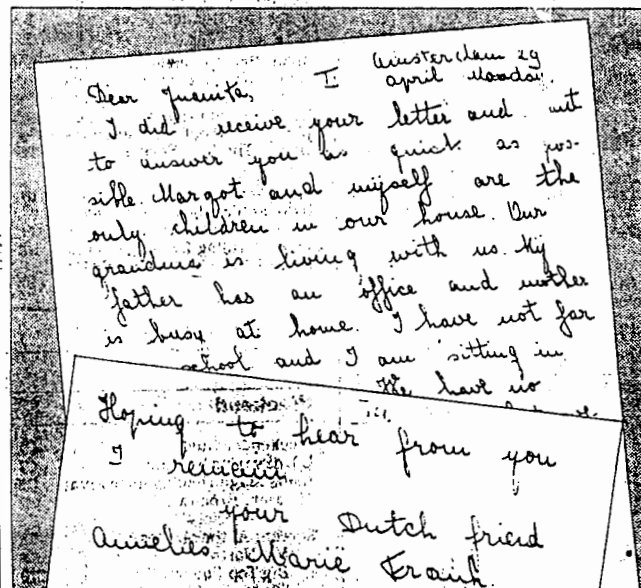 Amsterdam 29
April Monday.
Dear Juanita, I
I did receive your letter and
to answer you as quick as pos-
sible. Margot and myself are the
only children in our house. Our
grandma is living with us. My
father has an office and mother
is busy at home. I have not far
school and I am sitting in
We have no
Hoping to hear from you
I remain
your Dutch friend
Annelies Marie Frank